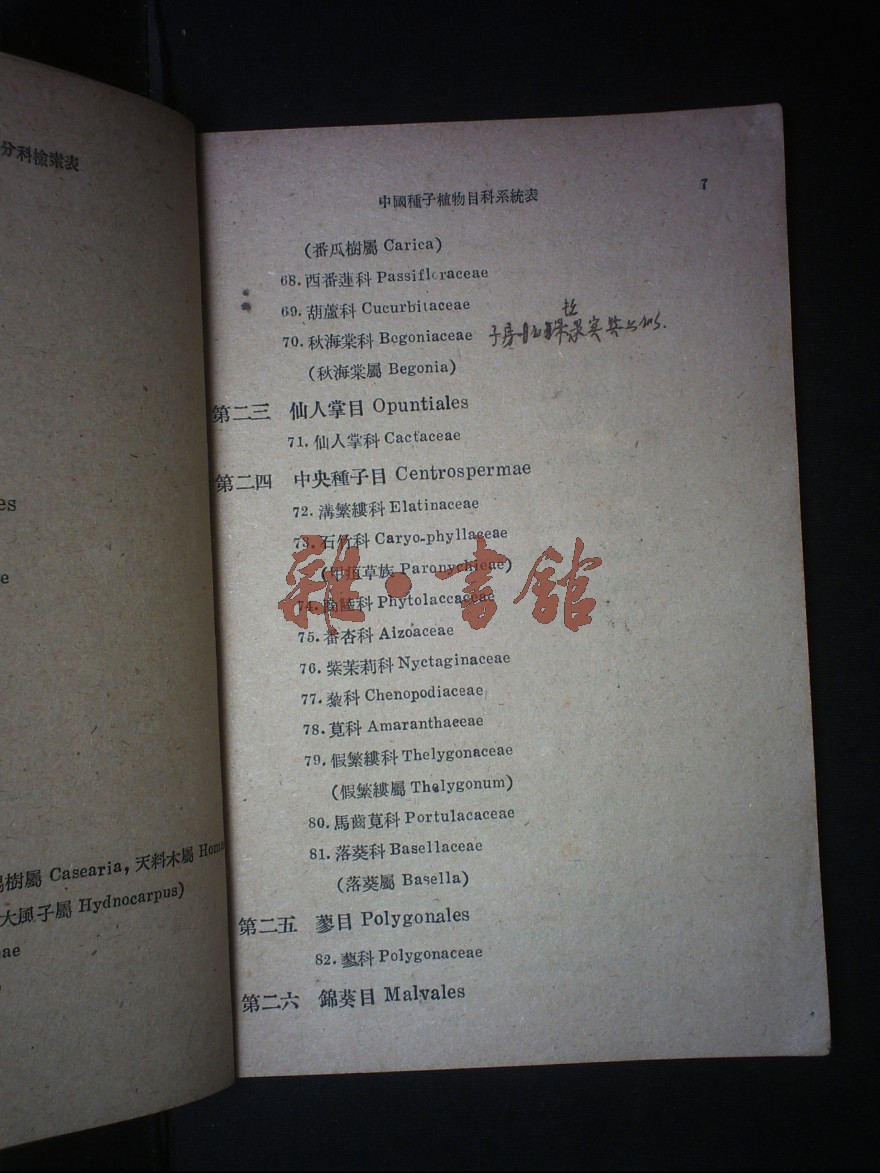 分科檢索表
es
e
楊樹屬 Casearia, 天料木屬 Homa
大風子屬 Hydnocarpus)
ae
中國種子植物目科系統表 7
(番瓜樹屬 Carica)
68. 西番蓮科 Passifloraceae
69. 葫蘆科 Cucurbitaceae
70. 秋海棠科 Begoniaceae 子房
(秋海棠屬 Begonia)
第二三 仙人掌目 Opuntiales
71. 仙人掌科 Cactaceae
第二四 中央種子目 Centrospermae
72. 溝繁縷科 Elatinaceae
73. 石竹科 Caryo-phyllaceae
草族 Paronychieae)
74. 商陸科 Phytolaccaceae
雜·書館
75. 番杏科 Aizoaceae
76. 紫茉莉科 Nyctaginaceae
77. 藜科 Chenopodiaceae
78. 莧科 Amaranthaceae
79. 假繁縷科 Thelygonaceae
(假繁縷屬 Thelygonum)
80. 馬齒莧科 Portulacaceae
81. 落葵科 Basellaceae
(落葵屬 Basella)
第二五 蓼目 Polygonales
82. 蓼科 Polygonaceae
第二六 錦葵目 Malvales